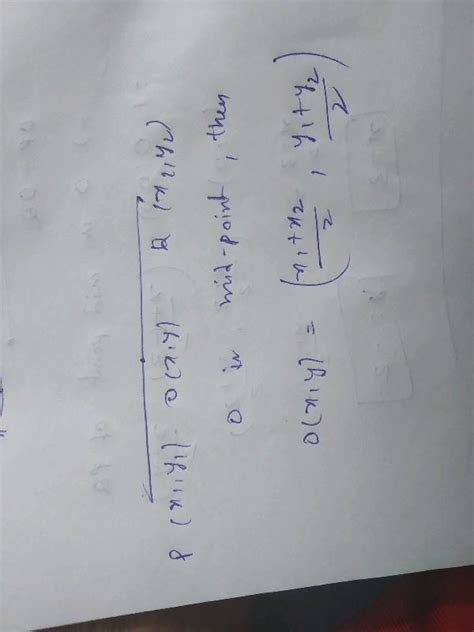 P (x1,y1) O(x,y) Q (x2,y2)
O is mid-point, then
O(x,y) = (x1+x2/2, y1+y2/2)